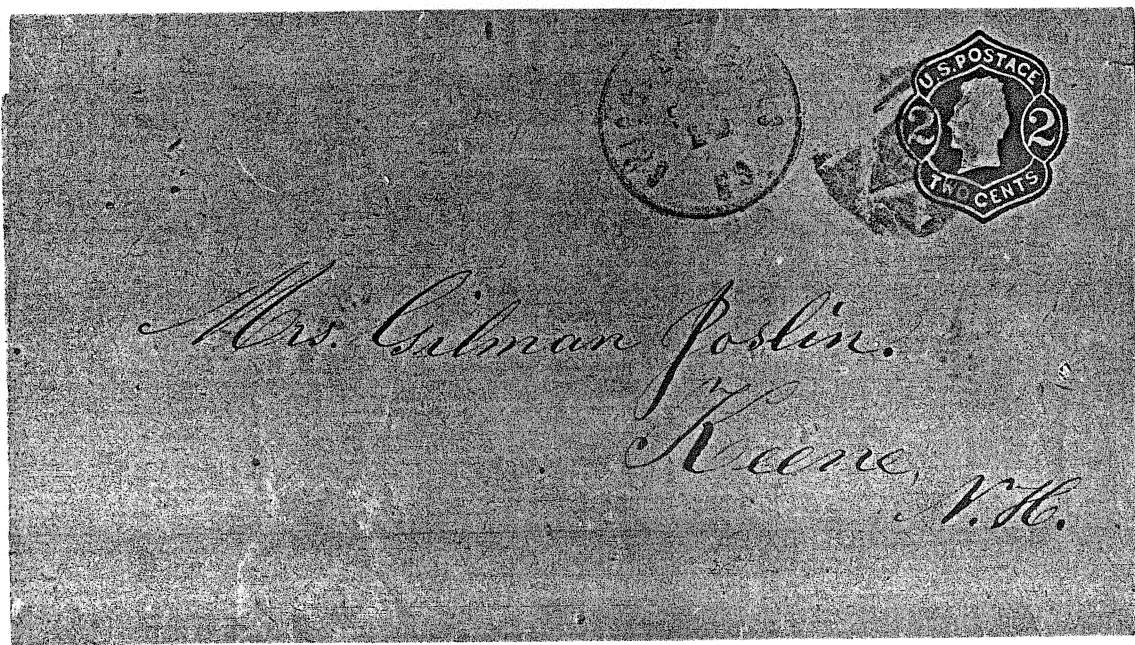 U.S. POSTAGE
2 2
TWO CENTS
Mrs. Gilman Joslin.
Keene,
N.H.